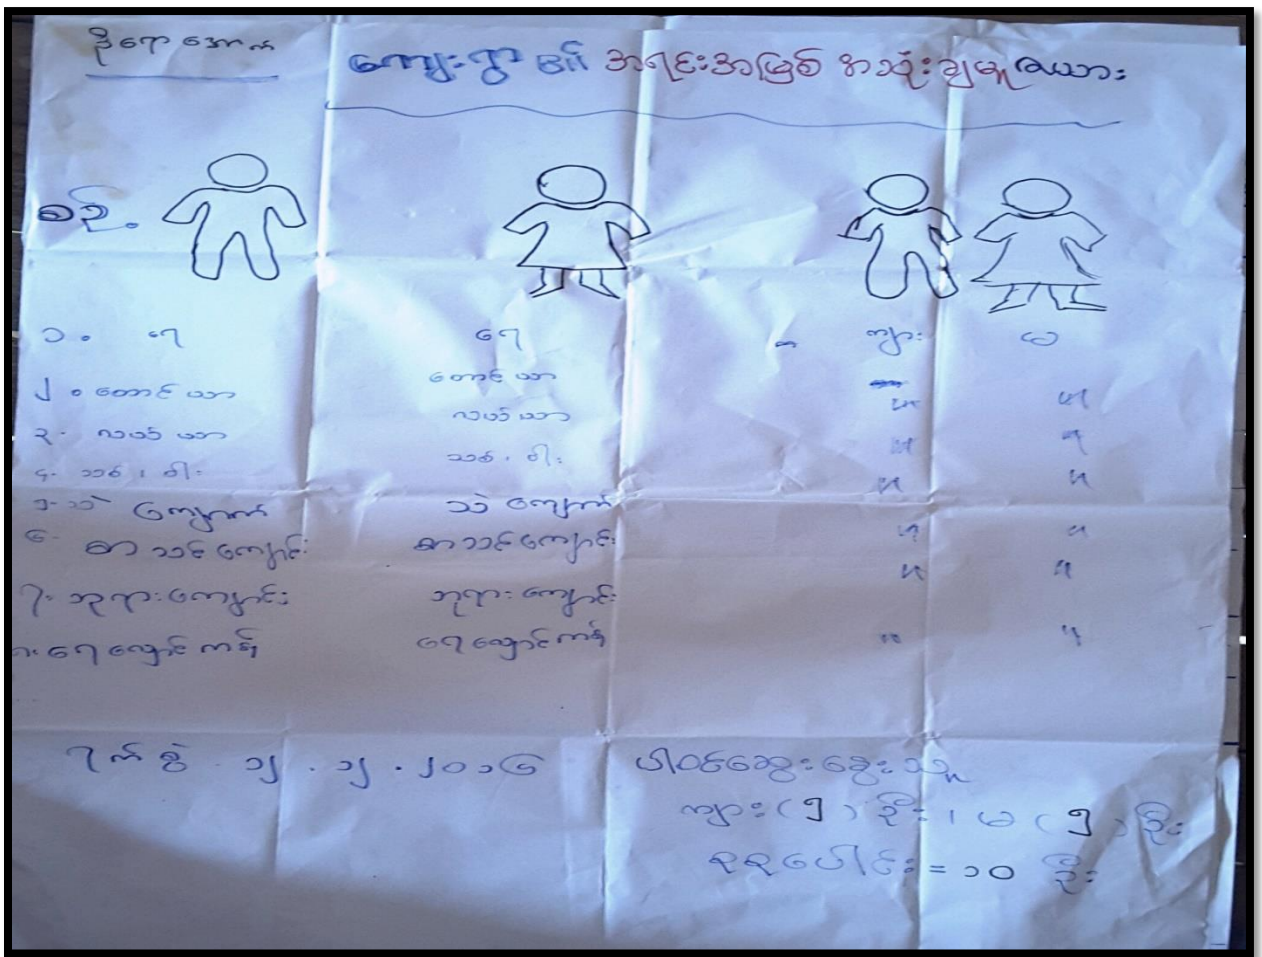 ဒီရော အောက်
ကျေးရွာ ၏ အရင်းအမြစ် အသုံးချမှု ဇယား
စဉ်.
၁. ရေ ရေ ကျား မ
၂. တောင်ယာ တောင်ယာ " "
၃. လယ်ယာ လယ်ယာ " "
၄. သစ်၊ ဝါး သစ်၊ ဝါး " "
၅. သဲ ကျောက် သဲ ကျောက် " "
၆. စာသင်ကျောင်း စာသင်ကျောင်း " "
၇. ဘုရားကျောင်း ဘုရားကျောင်း
၈. ရေလှောင်ကန် ရေလှောင်ကန် " "
ရက်စွဲ . ၁၂ . ၁၂ . ၂၀၁၆
ပါဝင်ဆွေးနွေးသူ
ကျား (၅) ဦး ၊ မ (၅) ဦး
စုစုပေါင်း = ၁၀ ဦး